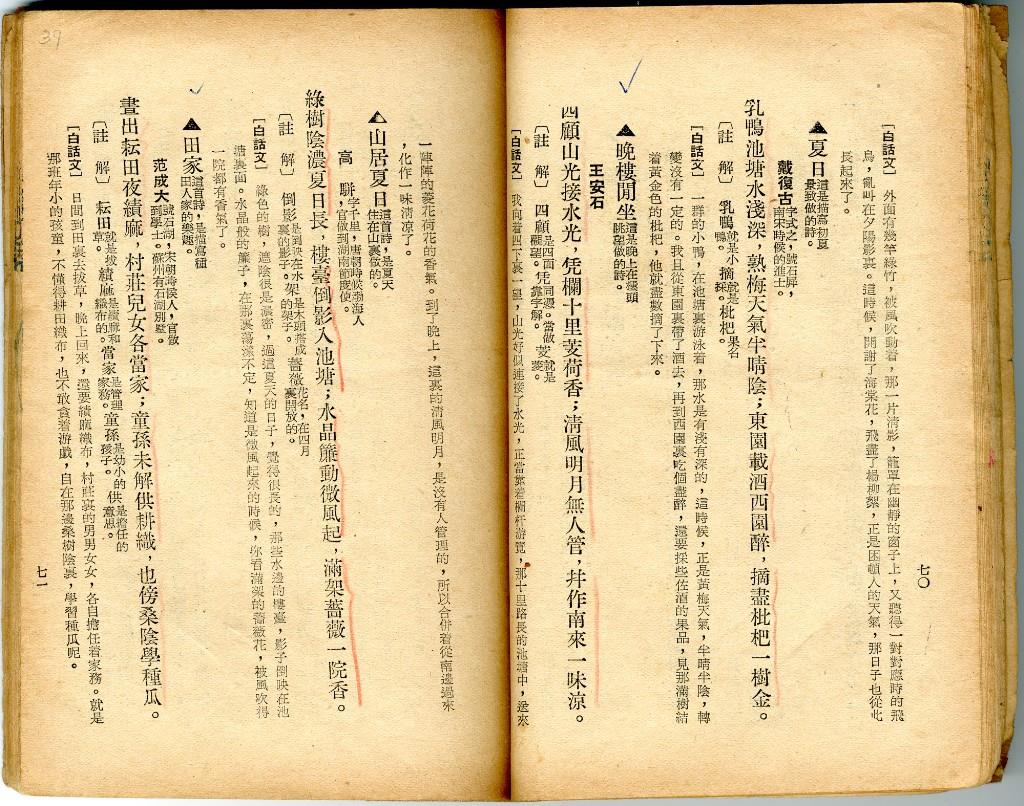 七〇
〔白話文〕 外面有幾竿綠竹，被風吹動着，那一片清影，籠罩在幽靜的窗子上，又聽得一對對應時的飛
鳥，亂叫在夕陽影裏。這時候，開謝了海棠花，飛盡了楊柳絮，正是困頓人的天氣，那日子也從此
長起來了。
▲夏日 這是描寫初夏景致做的詩。
戴復古 字式之，號石屏，南宋時候的進士。
乳鴨池塘水淺深，熟梅天氣半晴陰；東園載酒西園醉，摘盡枇杷一樹金。
〔註 解〕 乳鴨 就是小鴨。 摘 就是採。 枇杷 果名
〔白話文〕 一群的小鴨，在池塘裏游泳着，那水是有淺有深的，這時候，正是黃梅天氣，半晴半陰，轉
變沒有一定的。我且從東園裏帶了酒去，再到西園裏吃個盡醉，還要採些佐酒的果品，見那滿樹結
着黃金色的枇杷，他就盡數摘了下來。
▲晚樓閒坐 這是晚上在樓頭眺望做的詩。
王安石
四顧山光接水光，凭欄十里芰荷香；清風明月無人管，幷作南來一味涼。
〔註 解〕 四顧 是四面觀望。 凭 同憑。當做靠字解。 芰 就是菱。
〔白話文〕 我向着四下裏一望，山光好似連接了水光，正當靠着欄杆游覽，那十里路長的池塘中，送來
一陣陣的菱花荷花的香氣。到了晚上，這裏的清風明月，是沒有人管理的，所以合併着從南邊過來
，化作一味清涼了。
▲山居夏日 這首詩，是夏天住在山裏做的。
高 駢 字千里，唐朝時候渤海人，官做到湖南節度使。
綠樹陰濃夏日長，樓臺倒影入池塘；水晶簾動微風起，滿架薔薇一院香。
〔註 解〕 倒影 是倒映在水裏的影子。 架 是木頭搭成的架子。 薔薇 花名，在四月裏開放的。
〔白話文〕 綠色的樹，遮陰很是濃密，過這夏天的日子，覺得很長的，那些水邊的樓臺，影子倒映在池
塘裏面。水晶般的簾子，在那裏蕩漾不定，知道是微風起來的時候，你看滿架的薔薇花，被風吹得
一院都有香氣了。
▲田家 這首詩，是描寫種田人家的樂趣。
范成大 號石湖，宋朝時候人，官做到學士。蘇州有石湖別墅。
晝出耘田夜績麻，村莊兒女各當家；童孫未解供耕織，也傍桑陰學種瓜。
〔註 解〕 耘田 就是拔草。 績麻 是績麻和織布的。 當家 是管理家務。 童孫 是幼小的孩子。 供 是擔任的意思。
〔白話文〕 日間到田裏去拔草，晚上回來，還要績麻織布，村莊裏的男男女女，各自擔任着家務。就是
那班年小的孩童，不懂得耕田織布，也不敢貪着游戲，自在那邊桑樹陰裏，學習種瓜呢。
七一
39